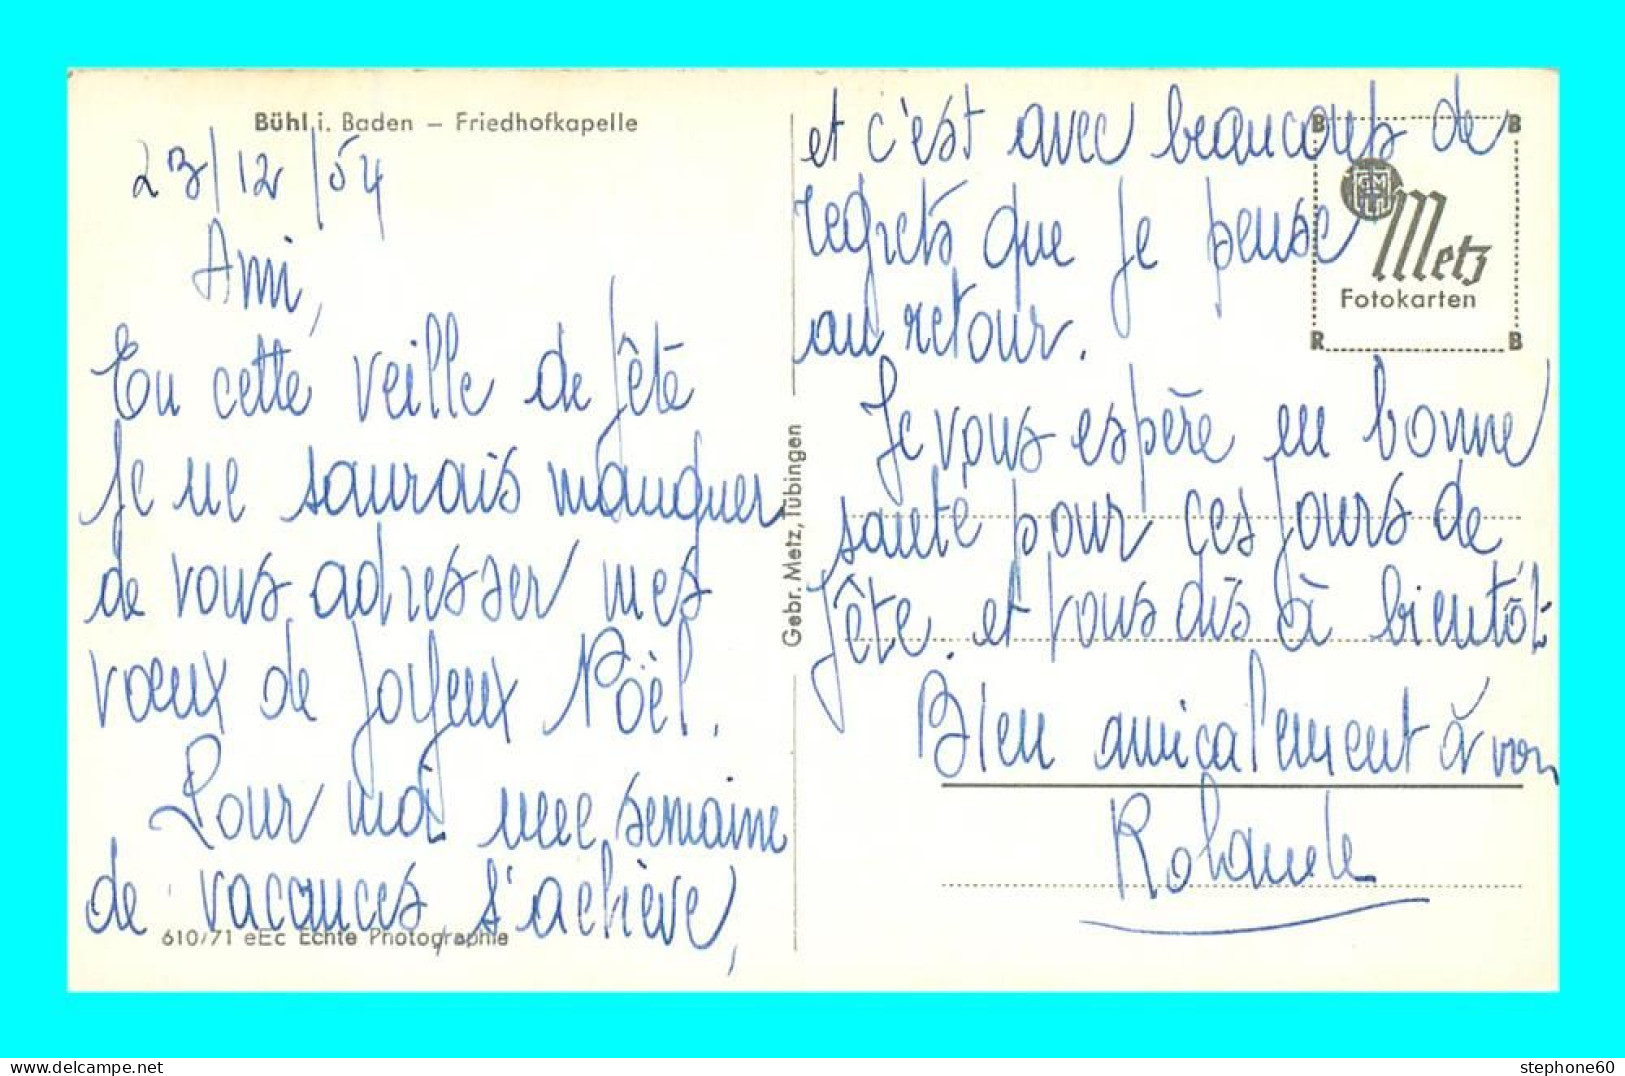 Bühl i. Baden – Friedhofkapelle
23/12/54
Ami,
En cette veille de fête
je ne saurais manquer
de vous adresser mes
vœux de joyeux Noël.
Pour moi une semaine
de vacances s'achève,
610/71 eEc Echte Photographie
Gebr. Metz, Tübingen
et c'est avec beaucoup de
regrets que je pense
au retour.
Je vous espère en bonne
santé pour ces jours de
fête. et vous dis à bientôt.
Bien amicalement à vous
Rolande
B B
GM
Metz
Fotokarten
R B
www.delcampe.net
stephone60